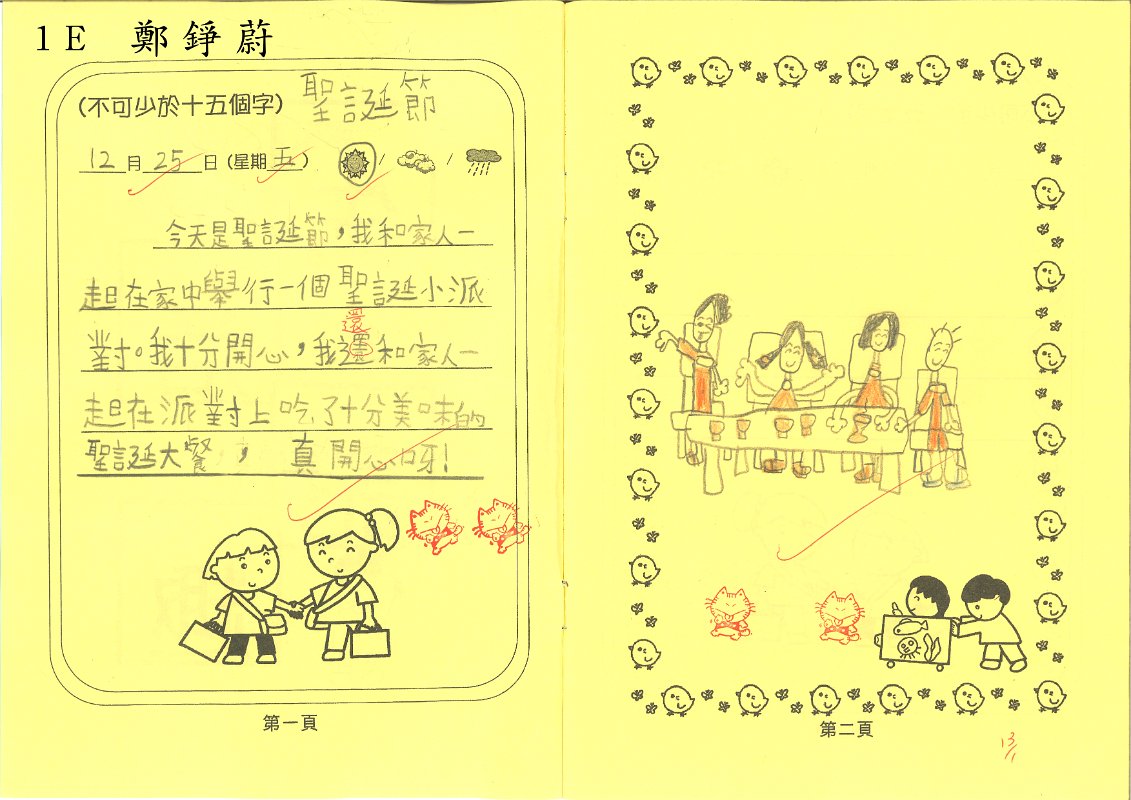 1E 鄭錚蔚
(不可少於十五個字) 聖誕節
12月25日(星期五) / /
今天是聖誕節,我和家人一
起在家中舉行一個聖誕小派
對。我十分開心,我還和家人一
還
起在派對上吃了十分美味的
聖誕大餐, 真開心呀!
第一頁
第二頁
13/1